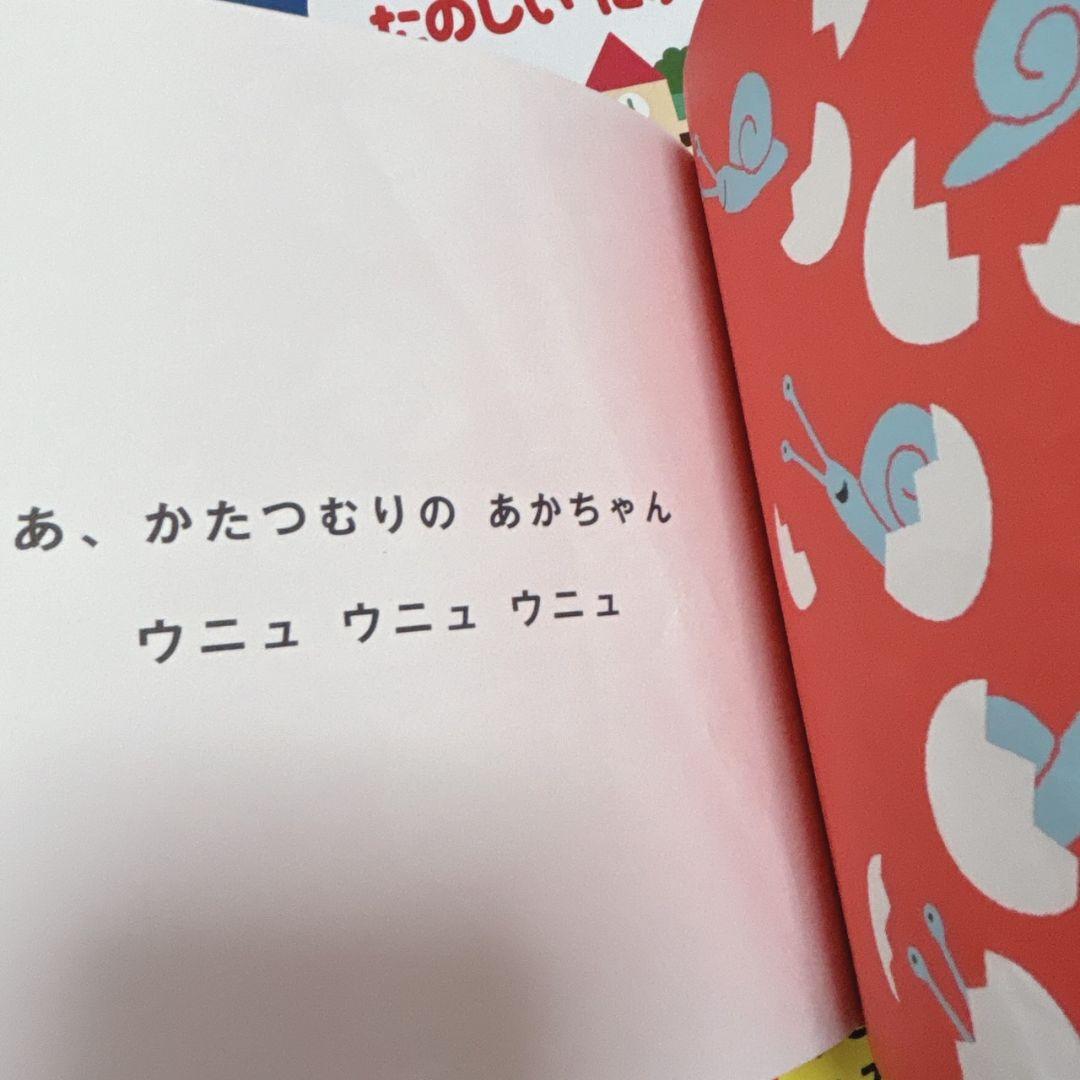 たのしい
あ、かたつむりの あかちゃん
ウニュ ウニュ ウニュ